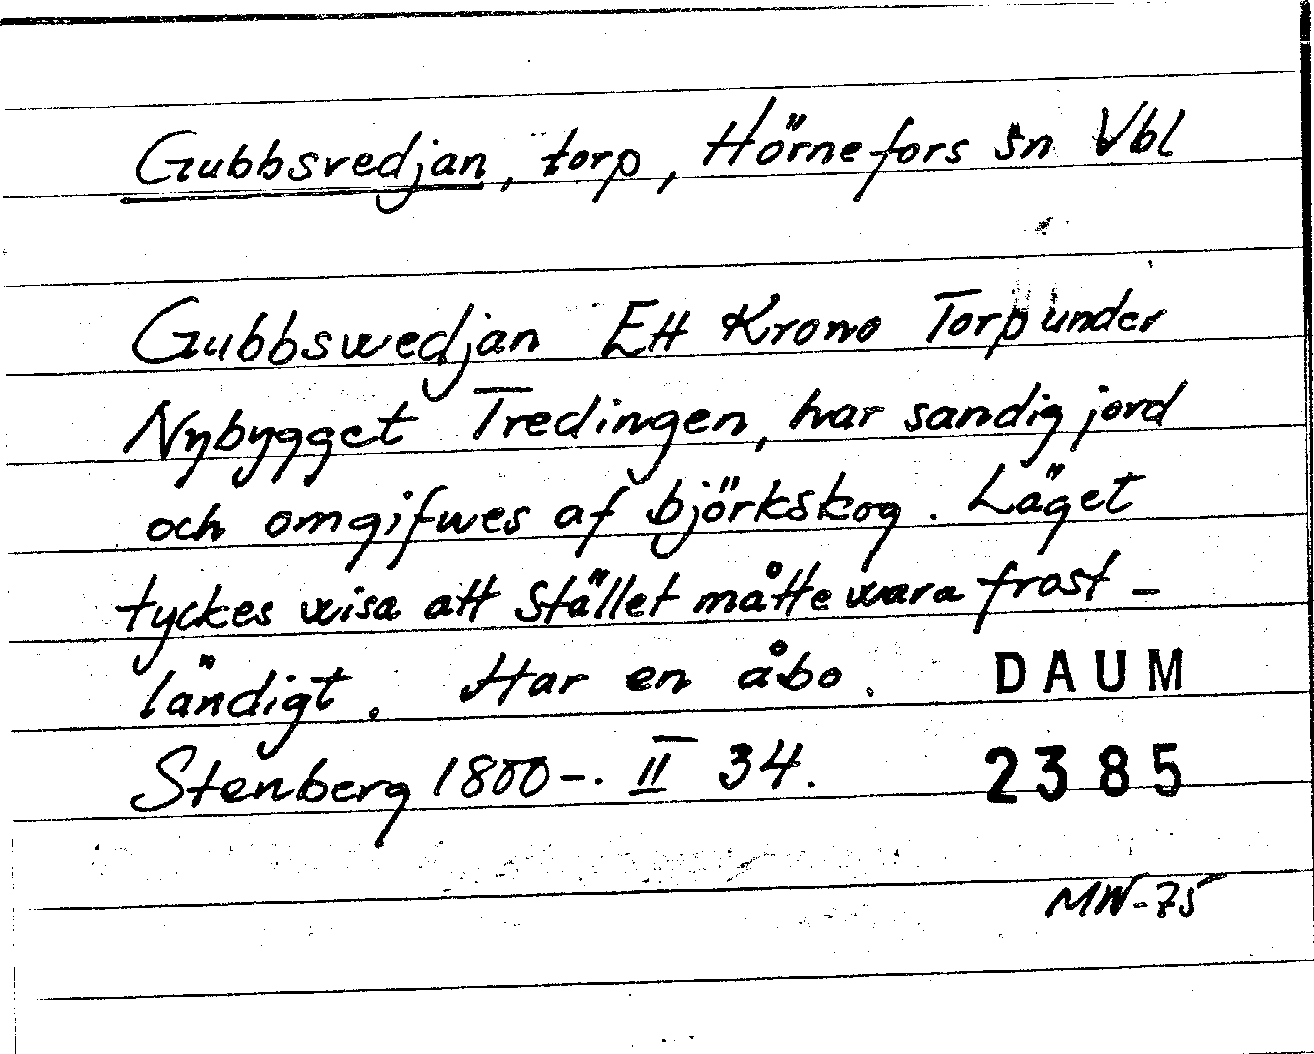 Gubbsvedjan, torp, Hörnefors sn Vbl
Gubbswedjan Ett Krono Torp under
Nybygget Tredingen, har sandig jord
och omgifwes af björkskog. Läget
tyckes wisa att Stället måtte wara frost-
ländigt. Har en åbo. DAUM
Stenberg 1800-. II 34. 2385
MW-75